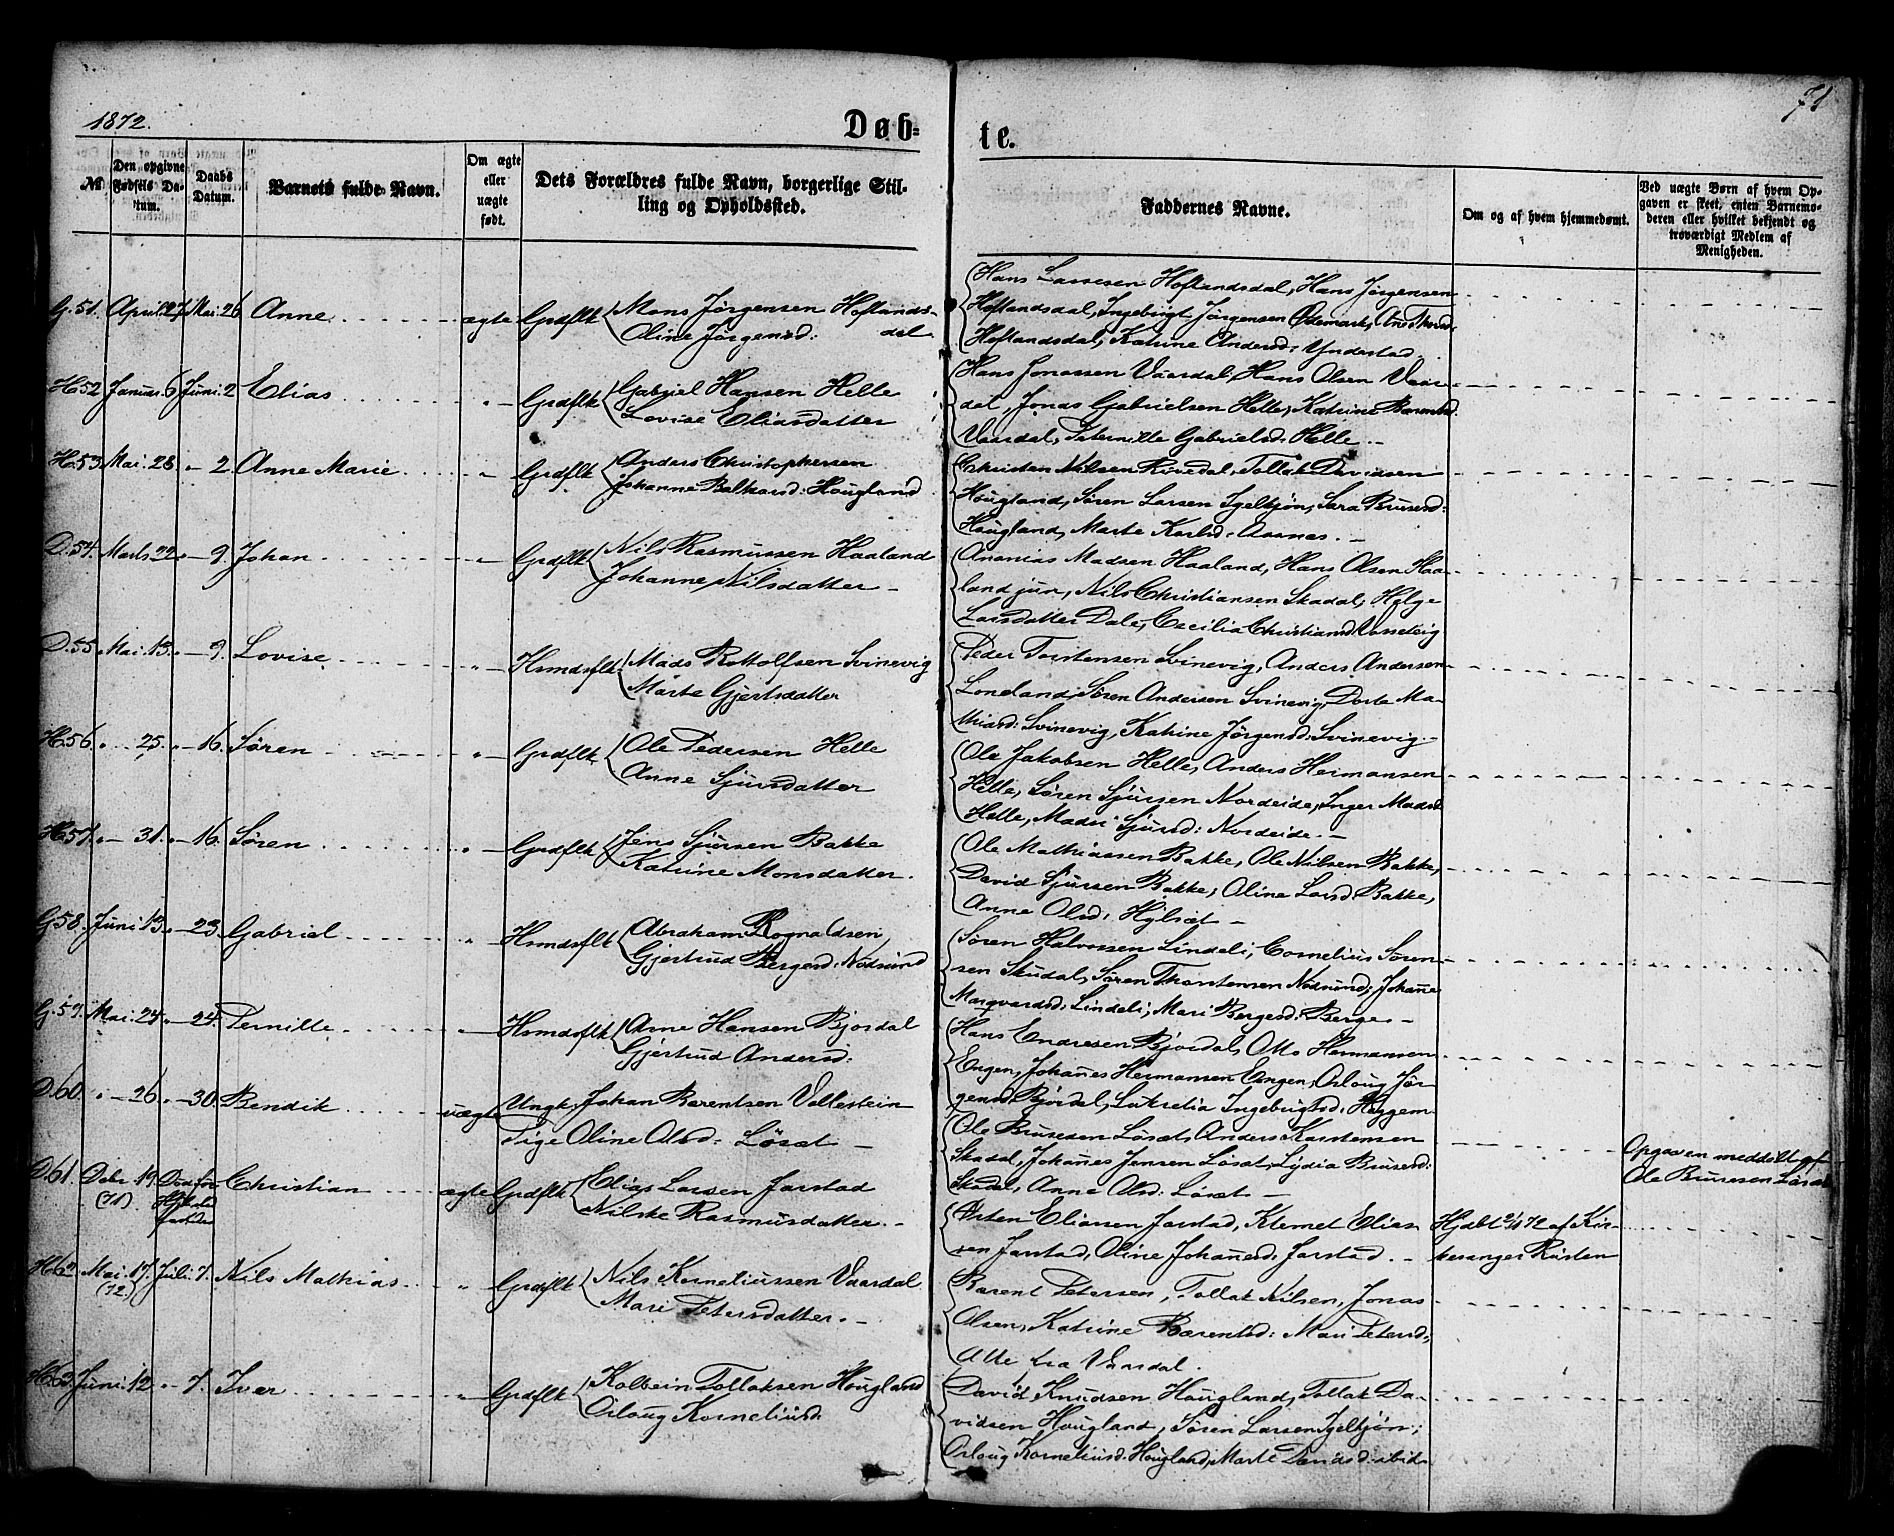 1872.
Døb=
te.
71
№
Den opgivne Fødsels Da-tum.
Daabs Datum.
Barnets fulde Navn.
Om ægte eller uægte født.
Dets Forældres fulde Navn, borgerlige Stil-
ling og Opholdssted.
Faddernes Navne.
Om og af hvem hjemmedøbt.
Ved uægte Børn af hvem Op-
gaven er skeet, enten Barnemo-
deren eller hvilket bekjendt og
troværdigt Medlem af
Menigheden.
G.51. April 27. Mai. 26 Anne ægte Grdflk Mons Jørgensen Hoflands-
Oline Jørgensd: dal
Hans Lassesen Hoflandsdal, Hans Jørgensen
Hoflandsdal, Ingebrigt Jørgensen Ødemark,
Hoflandsdal, Katrine Andersd: Yndestad
H.52 Januar 6 Juni. 2 Elias " Grdflk Gabriel Hansen Helle
Lovise Eliasdatter
Hans Jonassen Vaardal, Hans Olsen Vaar-
dal, Jonas Gabrielsen Helle, Katrine Barentsd.
Vaardal, Pternille Gabrielsd: Helle.-
H.53. Mai. 28. - 2 Anne Marie " Grdflk Anders Christophersen
Johanne Baltsarsd: Hougland
Christen Nilsen Tollak Davidsen
Hougland, Søren Larsen Igelkjøn, Sara Brusesd:
Hougland, Marte Karlsd: Aarnes. -
D.54. Marts 22. - 9. Johan " Grdflk Nils Rasmussen Haaland
Johanne Nilsdatter -
Ananias Madsen Haaland, Hans Olsen Haa-
land jun, Nils Christiansen Skadal, Helge
Larsdatter Dale, Cecilia Christiansd
D.55. Mai. 13. - 9. Lovise " Hsmdsflk Mads Rottolfsen Svinevig
Marte Gjertsdatter
Peder Torstensen Svinevig, Anders Andersen
Loneland, Søren Andersen Svinevig, Dorte Ma-
thiasd: Svinevig, Katrine Jørgensd: Svinevig.-
H.56. " - 25. " - 16. Søren " Grdflk Ole Pedersen Helle
Anne Sjursdatter
Ole Jakobsen Helle, Anders Heimansen
Helle, Søren Sjursen Nordeide, Inger Madsd
Helle, Madsi Sjursd: Nordeide. -
H.57. " - 31. " - 16. Søren " Grdflk Jens Sjursen Bakke
Katrine Monsdatter.
Ole Mathiassen Bakke, Ole Nilsen Bakke,
David Sjursen Bakke, Oline Larsd: Bakke,
Anne Olsd: Hylsæt -
G.58. Juni. 13. " - 23. Gabriel " Hsmdsflk Abraham Rognaldsen
Gjertrud Bergesd: Nødsund
Søren Halvorsen Lindeli, Cornelius Søren-
sen Skudal, Søren Thorstensen Nødsund, Johanne
Marqvardsd: Lindeli, Mari Bergesd: Berge -
G.59. Mai. 24. " - 24. Pernille " Hsmdsflk Arne Hansen Bjordal
Gjertrud Andersd:
Hans Endresen Bjordal, Otto Hermansen
Engen, Johanes Hermansen Engen, Orloug Jør-
gensd Bjordal, Lukretia Ingebrigtsd:
D.60. " - 26. " - 30. Bendik uægte Ungk. Johan Barentsen Vallestein
Pige Oline Olsd: Løset -
Ole Brusesen Løset, Anders Karstensen
Skadal, Johanes Jensen Løset, Lydia Brusesd:
Skadal, Anne Olsd: Løset -
Opgaven meddelt af
Ole Brusesen Løset
D.61. Debr. 19. (71) Død før Christian ægte Grdflk Elias Larsen Jarstad
Nilske Rasmusdatter. -
Østen Eliassen Jarstad, Klemet Elias-
sen Jarstad, Oline Johanesd: Jarstad. -
Hjdbt 2/1 72 af Kir-
H.62 Mai. 17. (72) Juli. 7. Nils Mathias " Grdflk Nils Korneliussen Vaardal
Mari Petersdatter. -
Barent Petersen, Tollak Nilsen, Jonas
Olsen, Katrine Barentsd: Mari Petersd,
Alle fra Vaardal.
H.63. Juni. 12. " - 7. Ivar " Grdflk Kolbein Tollaksen Hougland
Orloug Korneliusd.
David Knudsen Hougland, Tollak Da-
vidsen Hougland, Søren Larsen Igelkjøn,
Orloug Korneliusd: Hougland, Marte Davidsd: ibid.